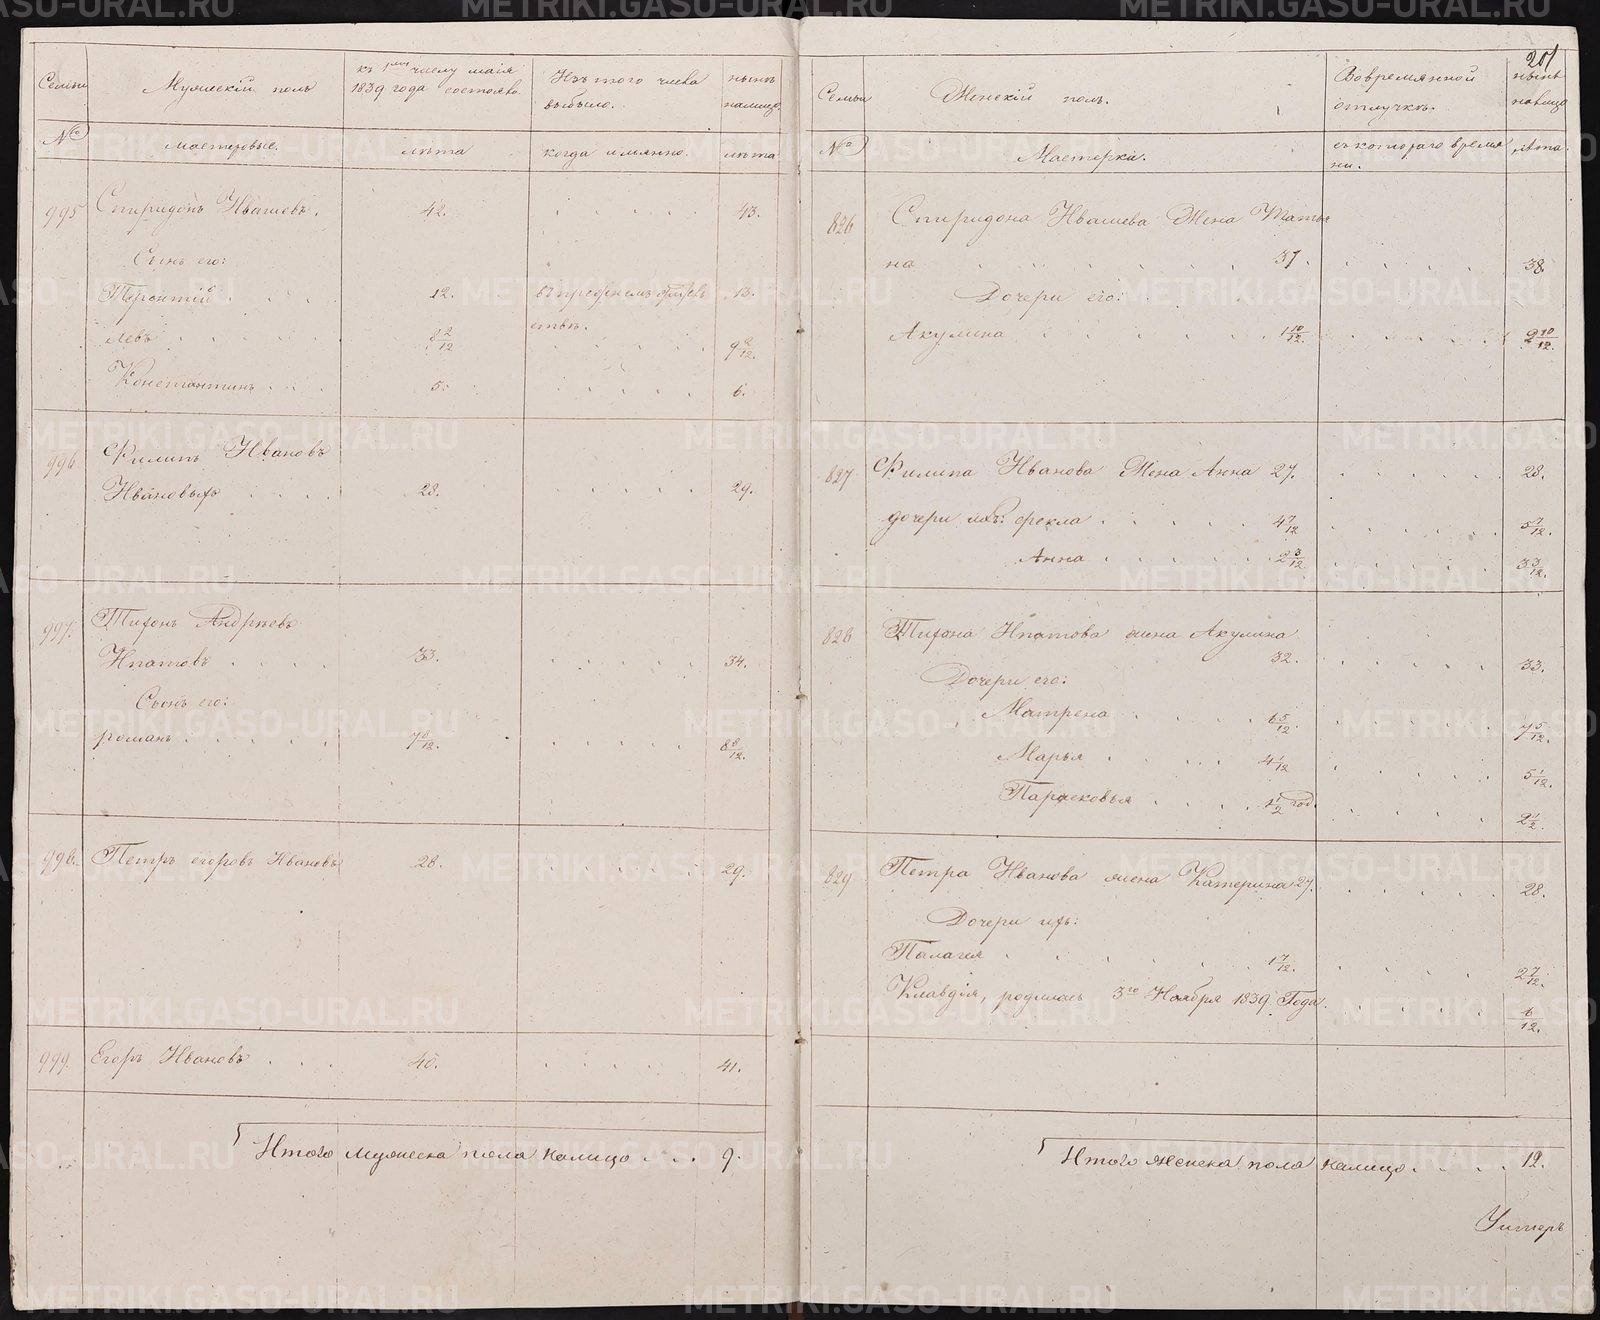 201
Семьи
Мужескій полъ
къ 1му числу маія
1839 года состояло
Изъ того числа
выбыло.
нынѣ
налицо
№
мастеровые.
лѣта
когда имянно.
лѣта
995
Спиридонъ Ивашевъ.
42.
43.
Сынъ его:
Терентій
12.
13.
левъ
8 2/12
9 2/12.
Константинъ
5.
6.
996
Филипъ Ивановъ
Ивановыхъ
28.
29.
997.
Тихонъ Андреевъ
Ипатовъ
33.
34.
Сынъ его:
романъ
7 8/12.
8 8/12.
998.
Петръ егоровъ Ивановъ
28.
29.
999.
Егоръ Ивановъ
40.
41.
Итого мужеска пола налицо
9.
Семьи
Женскій полъ.
Вовремянной
отлучкѣ.
нынѣ
налицо
№
Мастерки.
съ котораго время
ни.
лѣта.
826
Спиридона Ивашева Жена Татья
на
37.
38.
Дочери его:
Акулина
1 10/12.
2 10/12.
827
Филипа Иванова Жена Анна 27.
28.
дочери ихъ: Фекла
4 7/12
5 7/12.
Анна
2 3/12
3 3/12.
828
Тихона Ипатова жена Акулина
32.
33.
Дочери его:
Матрена
6 5/12.
7 5/12.
Марья
4 1/12
5 1/12.
Парасковья
1 1/2 год.
2 1/2.
829
Петра Иванова жена Катерина 27.
28.
Дочери ихъ:
Палагея
1 7/12.
2 7/12.
Клавдія, родилась 3го Ноября 1839 Года.
6/12.
Итого женска пола налицо
12.
METRIKI.GASO-URAL.RU